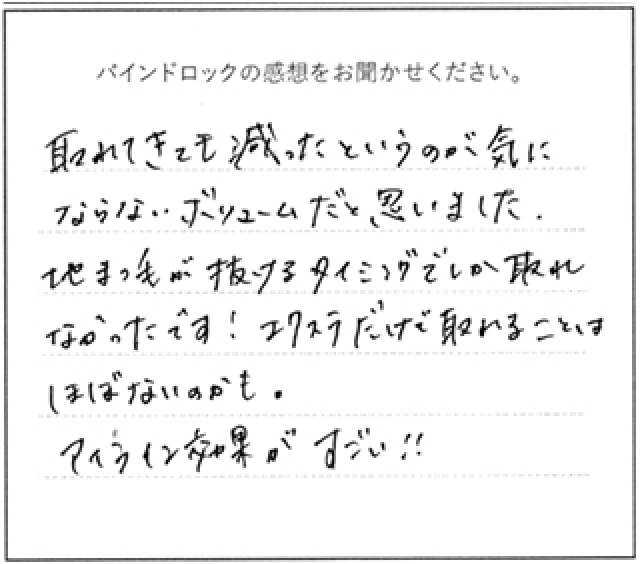 バインドロックの感想をお聞かせください。
取れてきても減ったというのが気に
ならないボリュームだと思いました.
地まつ毛が抜けるタイミングでしか取れ
なかったです！エクステだけで取れることは
ほぼないのかも。
アイライン効果がすごい!!